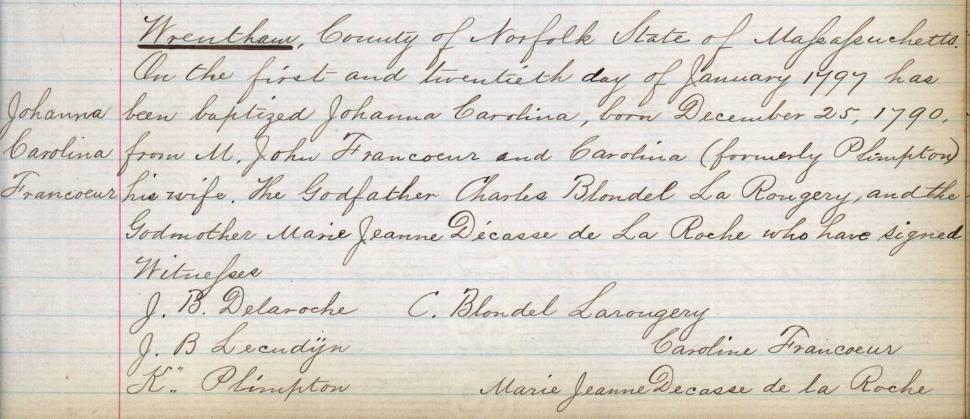 Wrentham, County of Norfolk State of Maſsaſsuchetts.
On the first and twentieth day of January 1797 has
Johanna been baptized Johanna Carolina, born December 25, 1790.
Carolina from M. John Francoeur and Carolina (formerly Plimpton)
Francoeur his wife. The Godfather Charles Blondel La Rougery, and the
Godmother Marie Jeanne Décasse de La Roche who have signed
Witneſses
J. B. Delaroche C. Blondel Larougery
J. B Lecudÿn Caroline Francoeur
K" Plimpton Marie Jeanne Decasse de la Roche